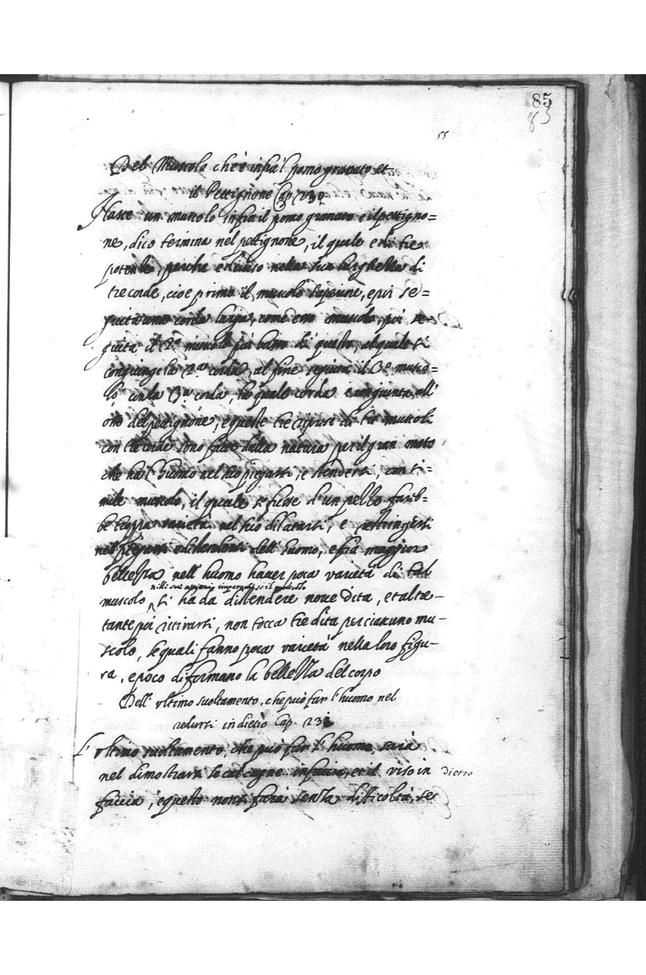 85
85
55
Del Muscolo che è infra'l pomo granato et
il Pettignone Cap. 230
Nasce un muscolo infra il pomo granato e il pettigno=
ne, dico termina nel petignone, il quale e di tre
potentie, perche e diuiso nella sua larghezza di
tre corde, cioè prima il muscolo superiore, e poi se=
guita una corda larga, come esso muscolo, poi se
guita il 2.º muscolo più basso di questo, al quale si
congiunge la 2.ª corda, al fine seguita il 3.º musco=
lo con la 3.ª corda, le quale corde congiunte all'
osso del petignone, e queste tre di tre muscoli
con tre corde sono fatte dalla natura per il gran moto
che ha l'huomo nel suo piegarsi, e stendersi, con si=
mile muscolo, il quale se fusse d'un pezzo fareb=
be troppa varietà nel suo dilatarsi, e restringersi
nel piegarsi e distendersi dell'huomo, e fia maggior
bellezza nell'huomo haver poca varietà di tal
muscolo si ha da distendere noue dita, et altre=
tante poi ritirarsi, non tocca tre dita per ciascuno mu=
scolo, le quali fanno poca varietà nella loro figu=
ra, e poco diformano la bellezza del corpo
Dell'ultimo suoltamento, che può far l'huomo nel
uedersi in dietro Cap. 231
L'ultimo suoltamento che può far l'huomo sarà
nel dimostrarsi le calcagne in faccia, et il viso in dietro
faccia, e questo non si farà senza dificoltà, se